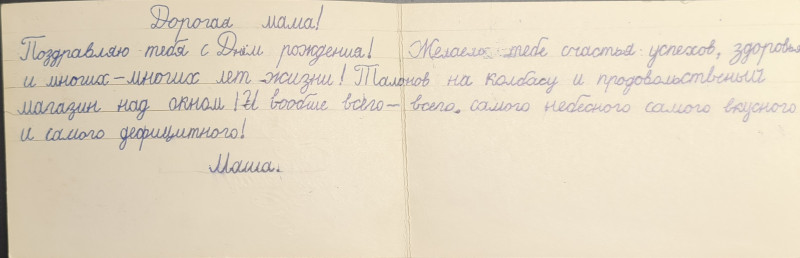 Дорогая мама!
Поздравляю тебя с Днём рождения! Желаем тебе счастья успехов, здоровья
и многих-многих лет жизни! Талонов на колбасу и продовольственый
магазин над окном! И вообще всего-всего самого небесного самого вкусного
и самого дефицитного!
Маша.